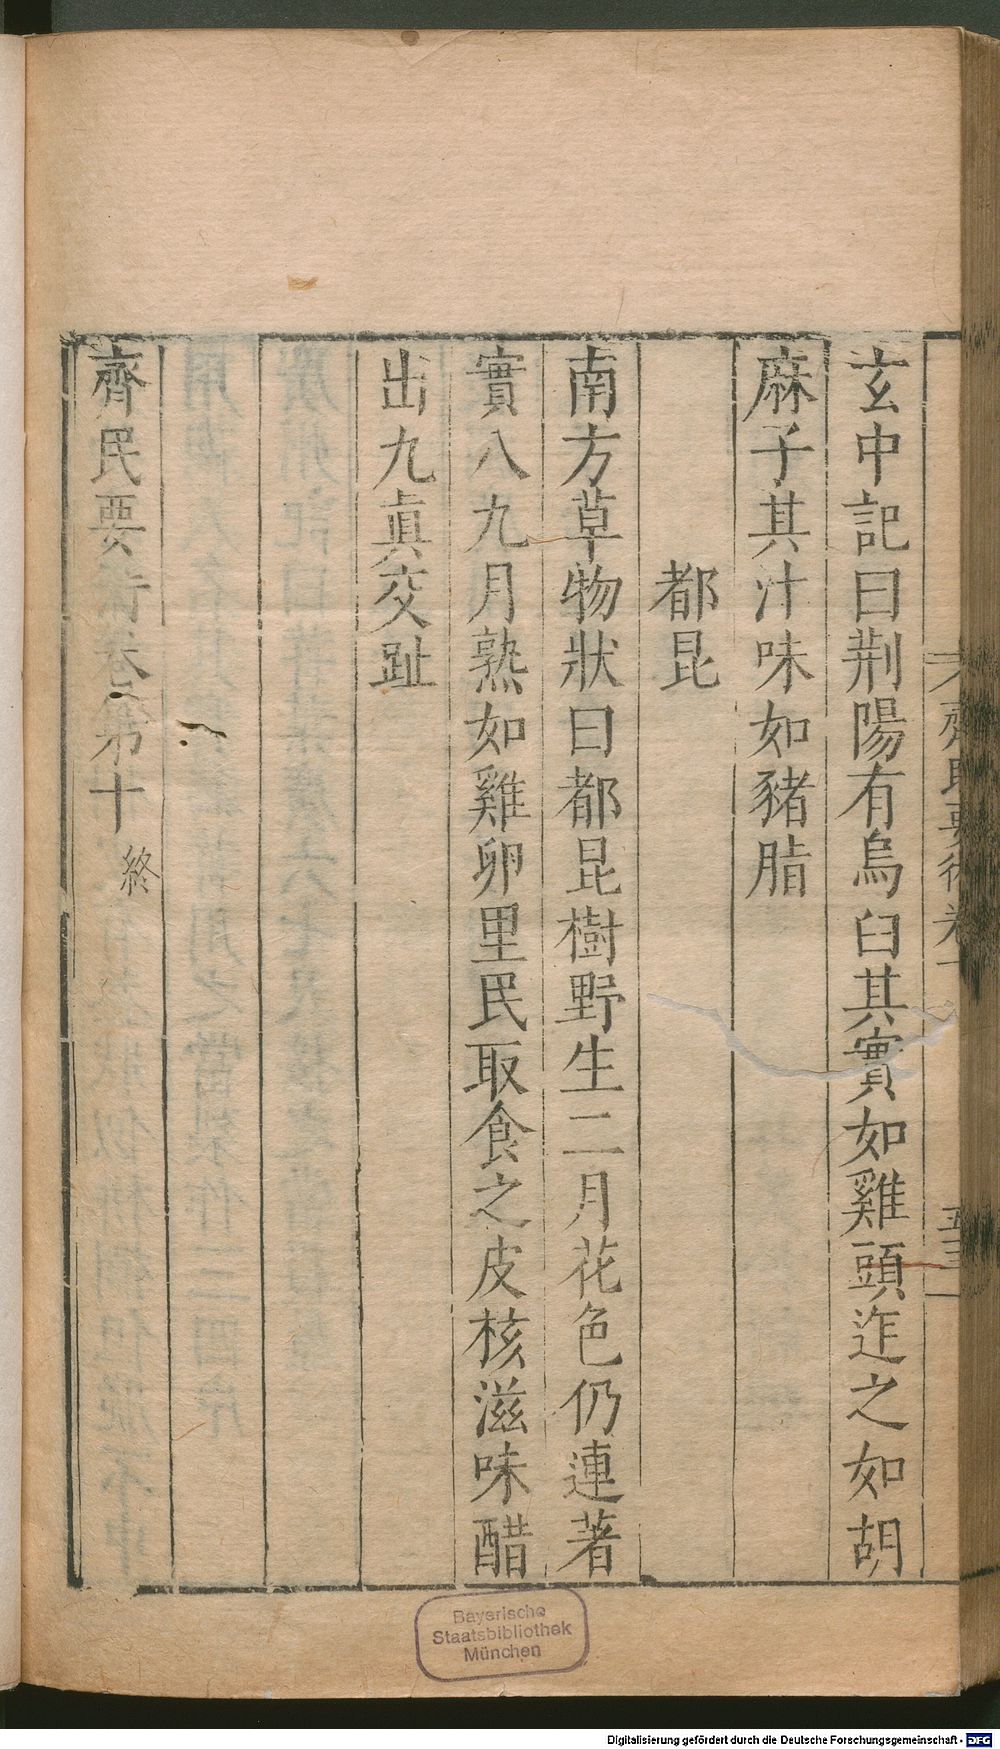 玄中記曰荆陽有烏臼其實如雞頭迮之如胡
麻子其汁味如豬脂
都昆
南方草物狀曰都昆樹野生二月花色仍連著
實八九月熟如雞卵里民取食之皮核滋味醋
出九眞交趾
齊民要術卷第十 終
齊民要術卷十
五三
Bayerische
Staatsbibliothek
München
Digitalisierung gefördert durch die Deutsche Forschungsgemeinschaft - DFG